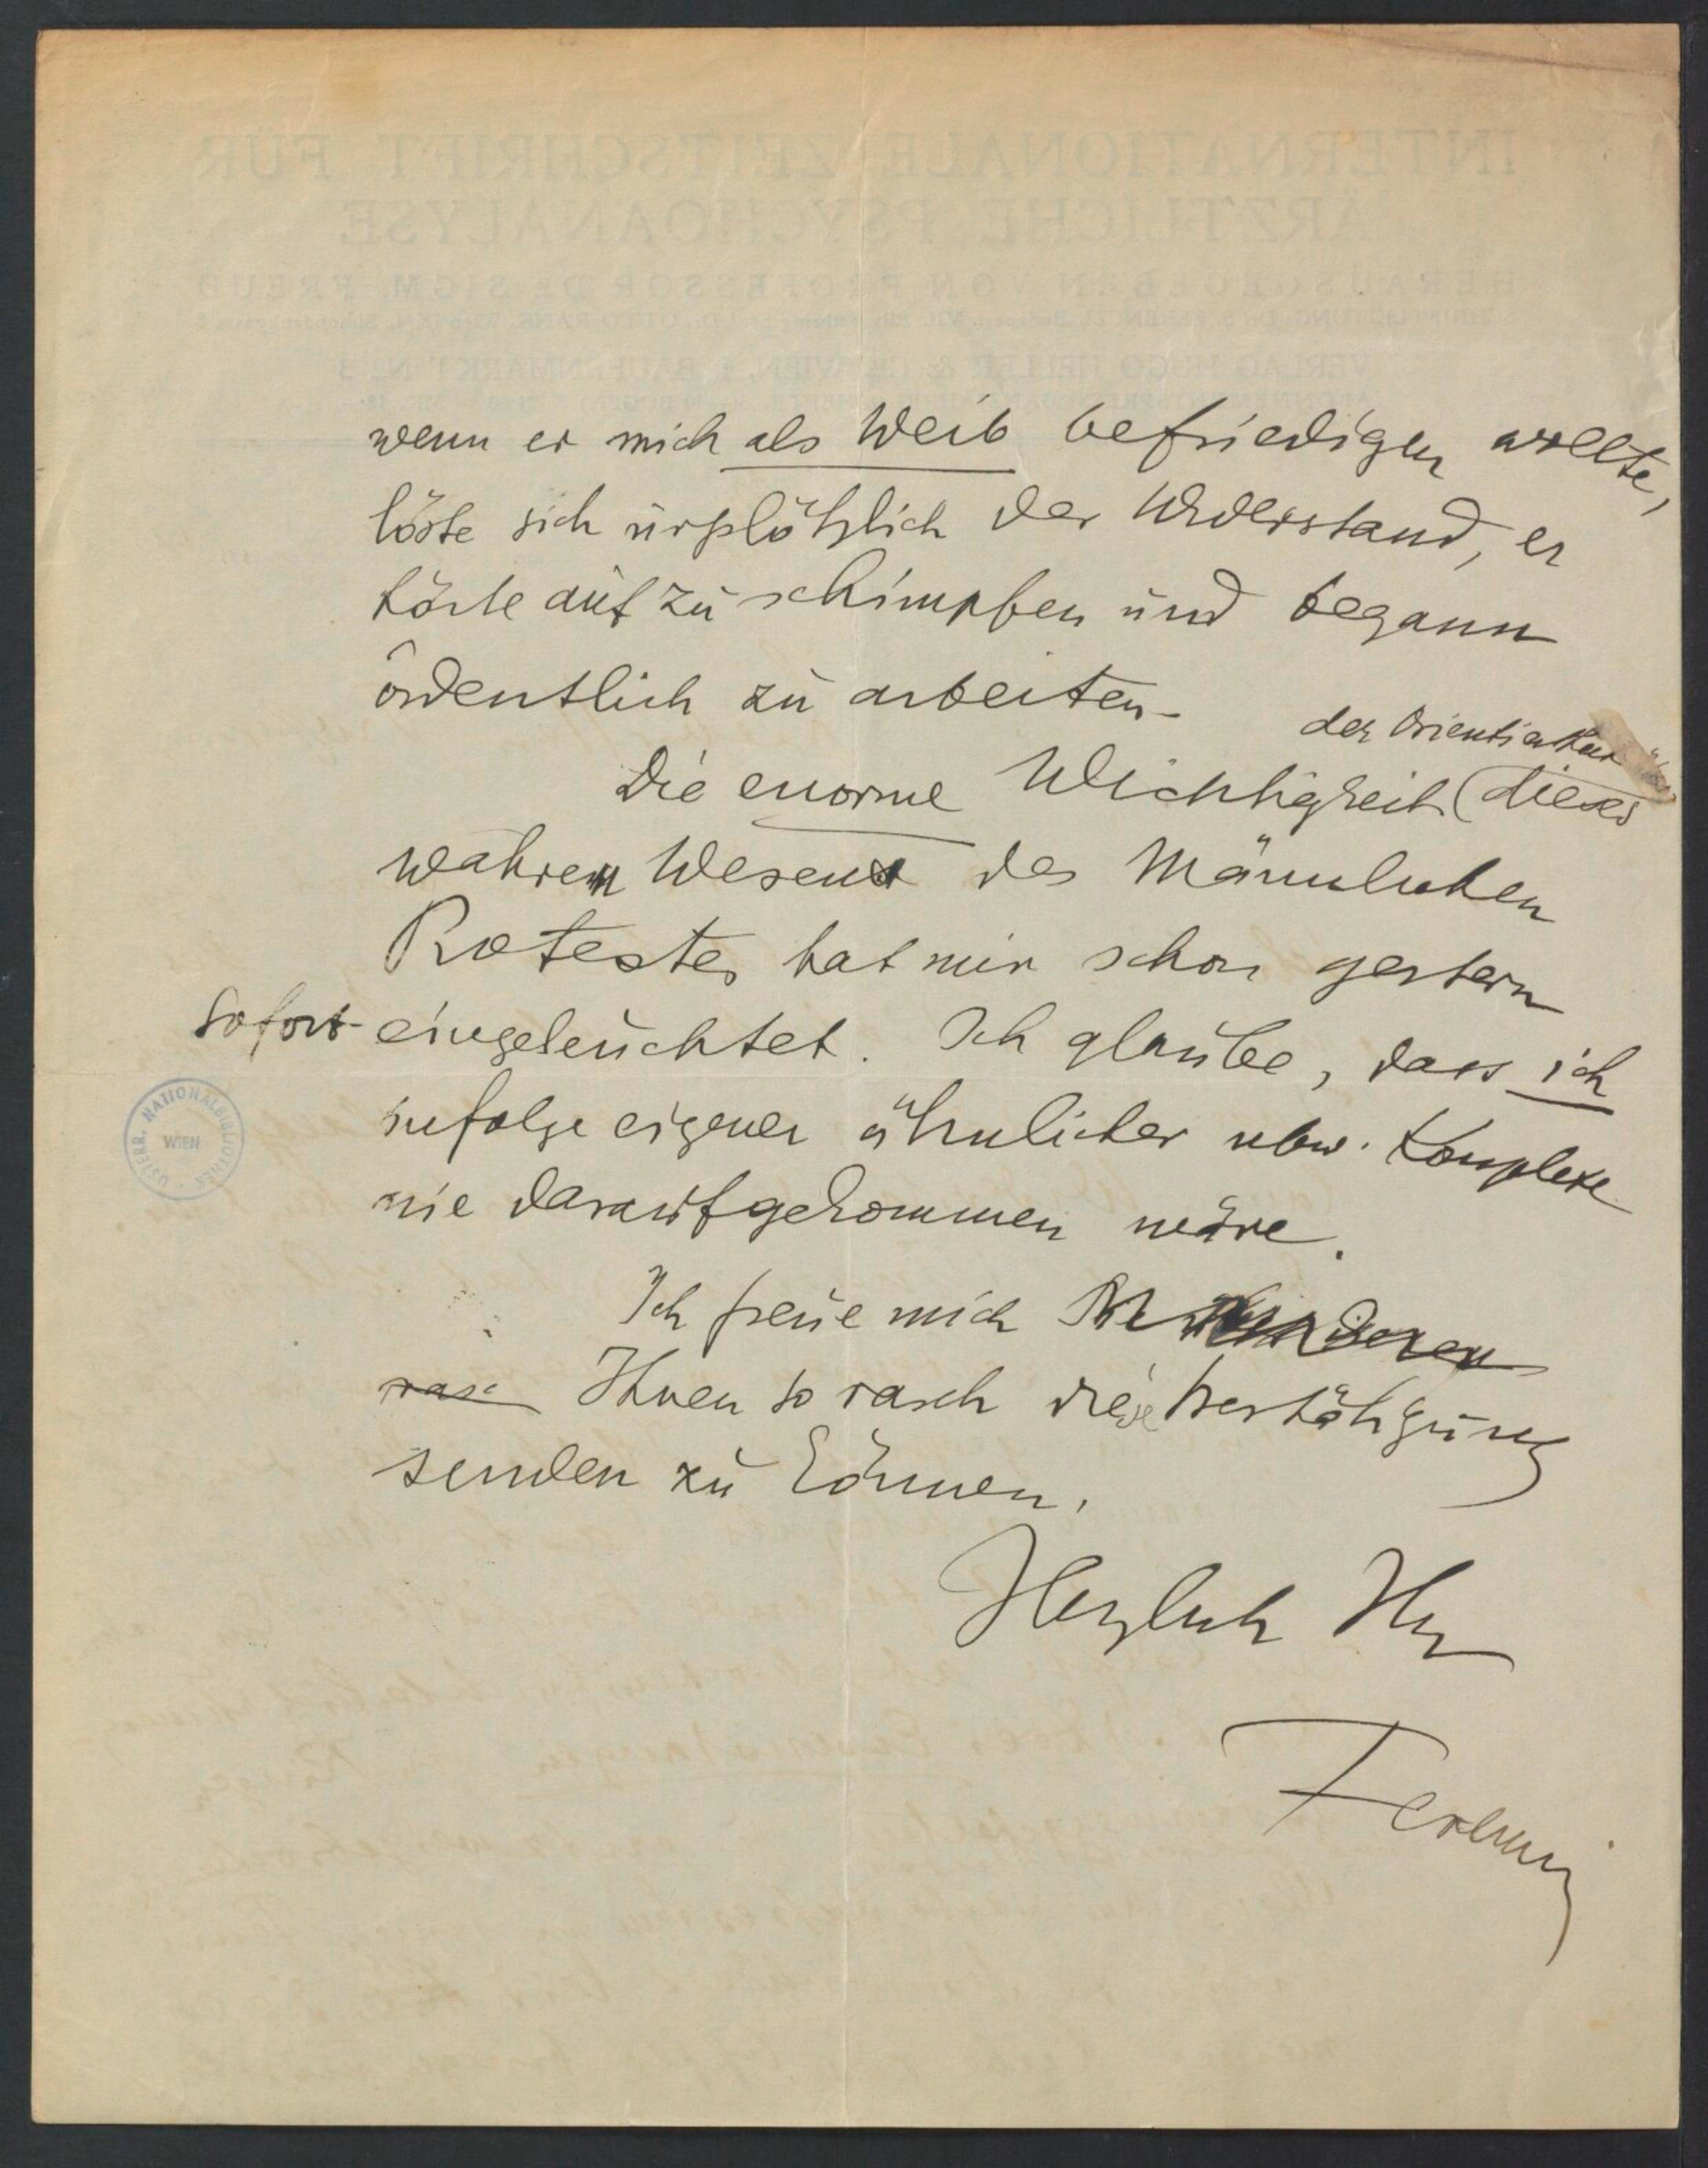 wenn er mich als Weib befriedigen wollte,
löste sich urplötzlich der Widerstand, er
hörte auf zu schimpfen und begann
ordentlich zu arbeiten.
der Orientierung
Die enorme Wichtigkeit (dieses
wahren Wesens des Männlichen
Protestes hat mir schon gestern
sofort eingeleuchtet. Ich glaube, dass ich
infolge eigener ähnlicher usw. Komplexe
nie daraufgekommen wäre.
Ich freue mich
rasc Ihnen so rasch diese Bestätigung
senden zu können.
Herzlich Ihr
Ferenczi
ÖSTERR. NATIONALBIBLIOTHEK
WIEN
INTERNATIONALE ZEITSCHRIFT FÜR
ÄRZTLICHE PSYCHOANALYSE
HERAUSGEGEBEN VON PROFESSOR Dr SIGM. FREUD
VERLAG HUGO HELLER & Cie, WIEN, I. BAUERNMARKT No 3